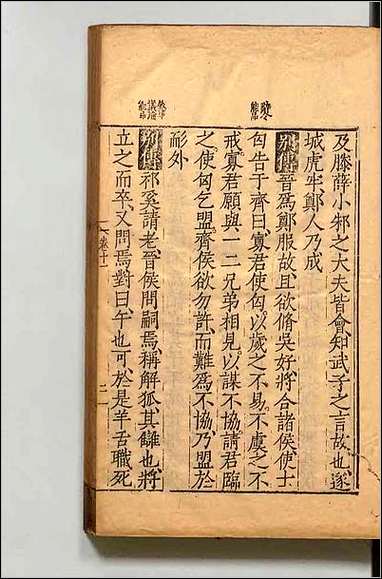 及滕薛小邾之大夫皆會知武子之言故也遂
城虎牢鄭人乃成
別傳晉爲鄭服故且欲脩吳好將合諸侯使士
匄告于齊曰寡君使匄以歲之不易不虞之不
戒寡君願與一二兄弟相見以謀不協請君臨
之使匄乞盟齊侯欲勿許而難爲不協乃盟於
耏外
別傳祁奚請老晉侯問嗣焉稱解狐其讎也將
立之而卒又問焉對曰午也可於是羊舌職死
卷十一
二